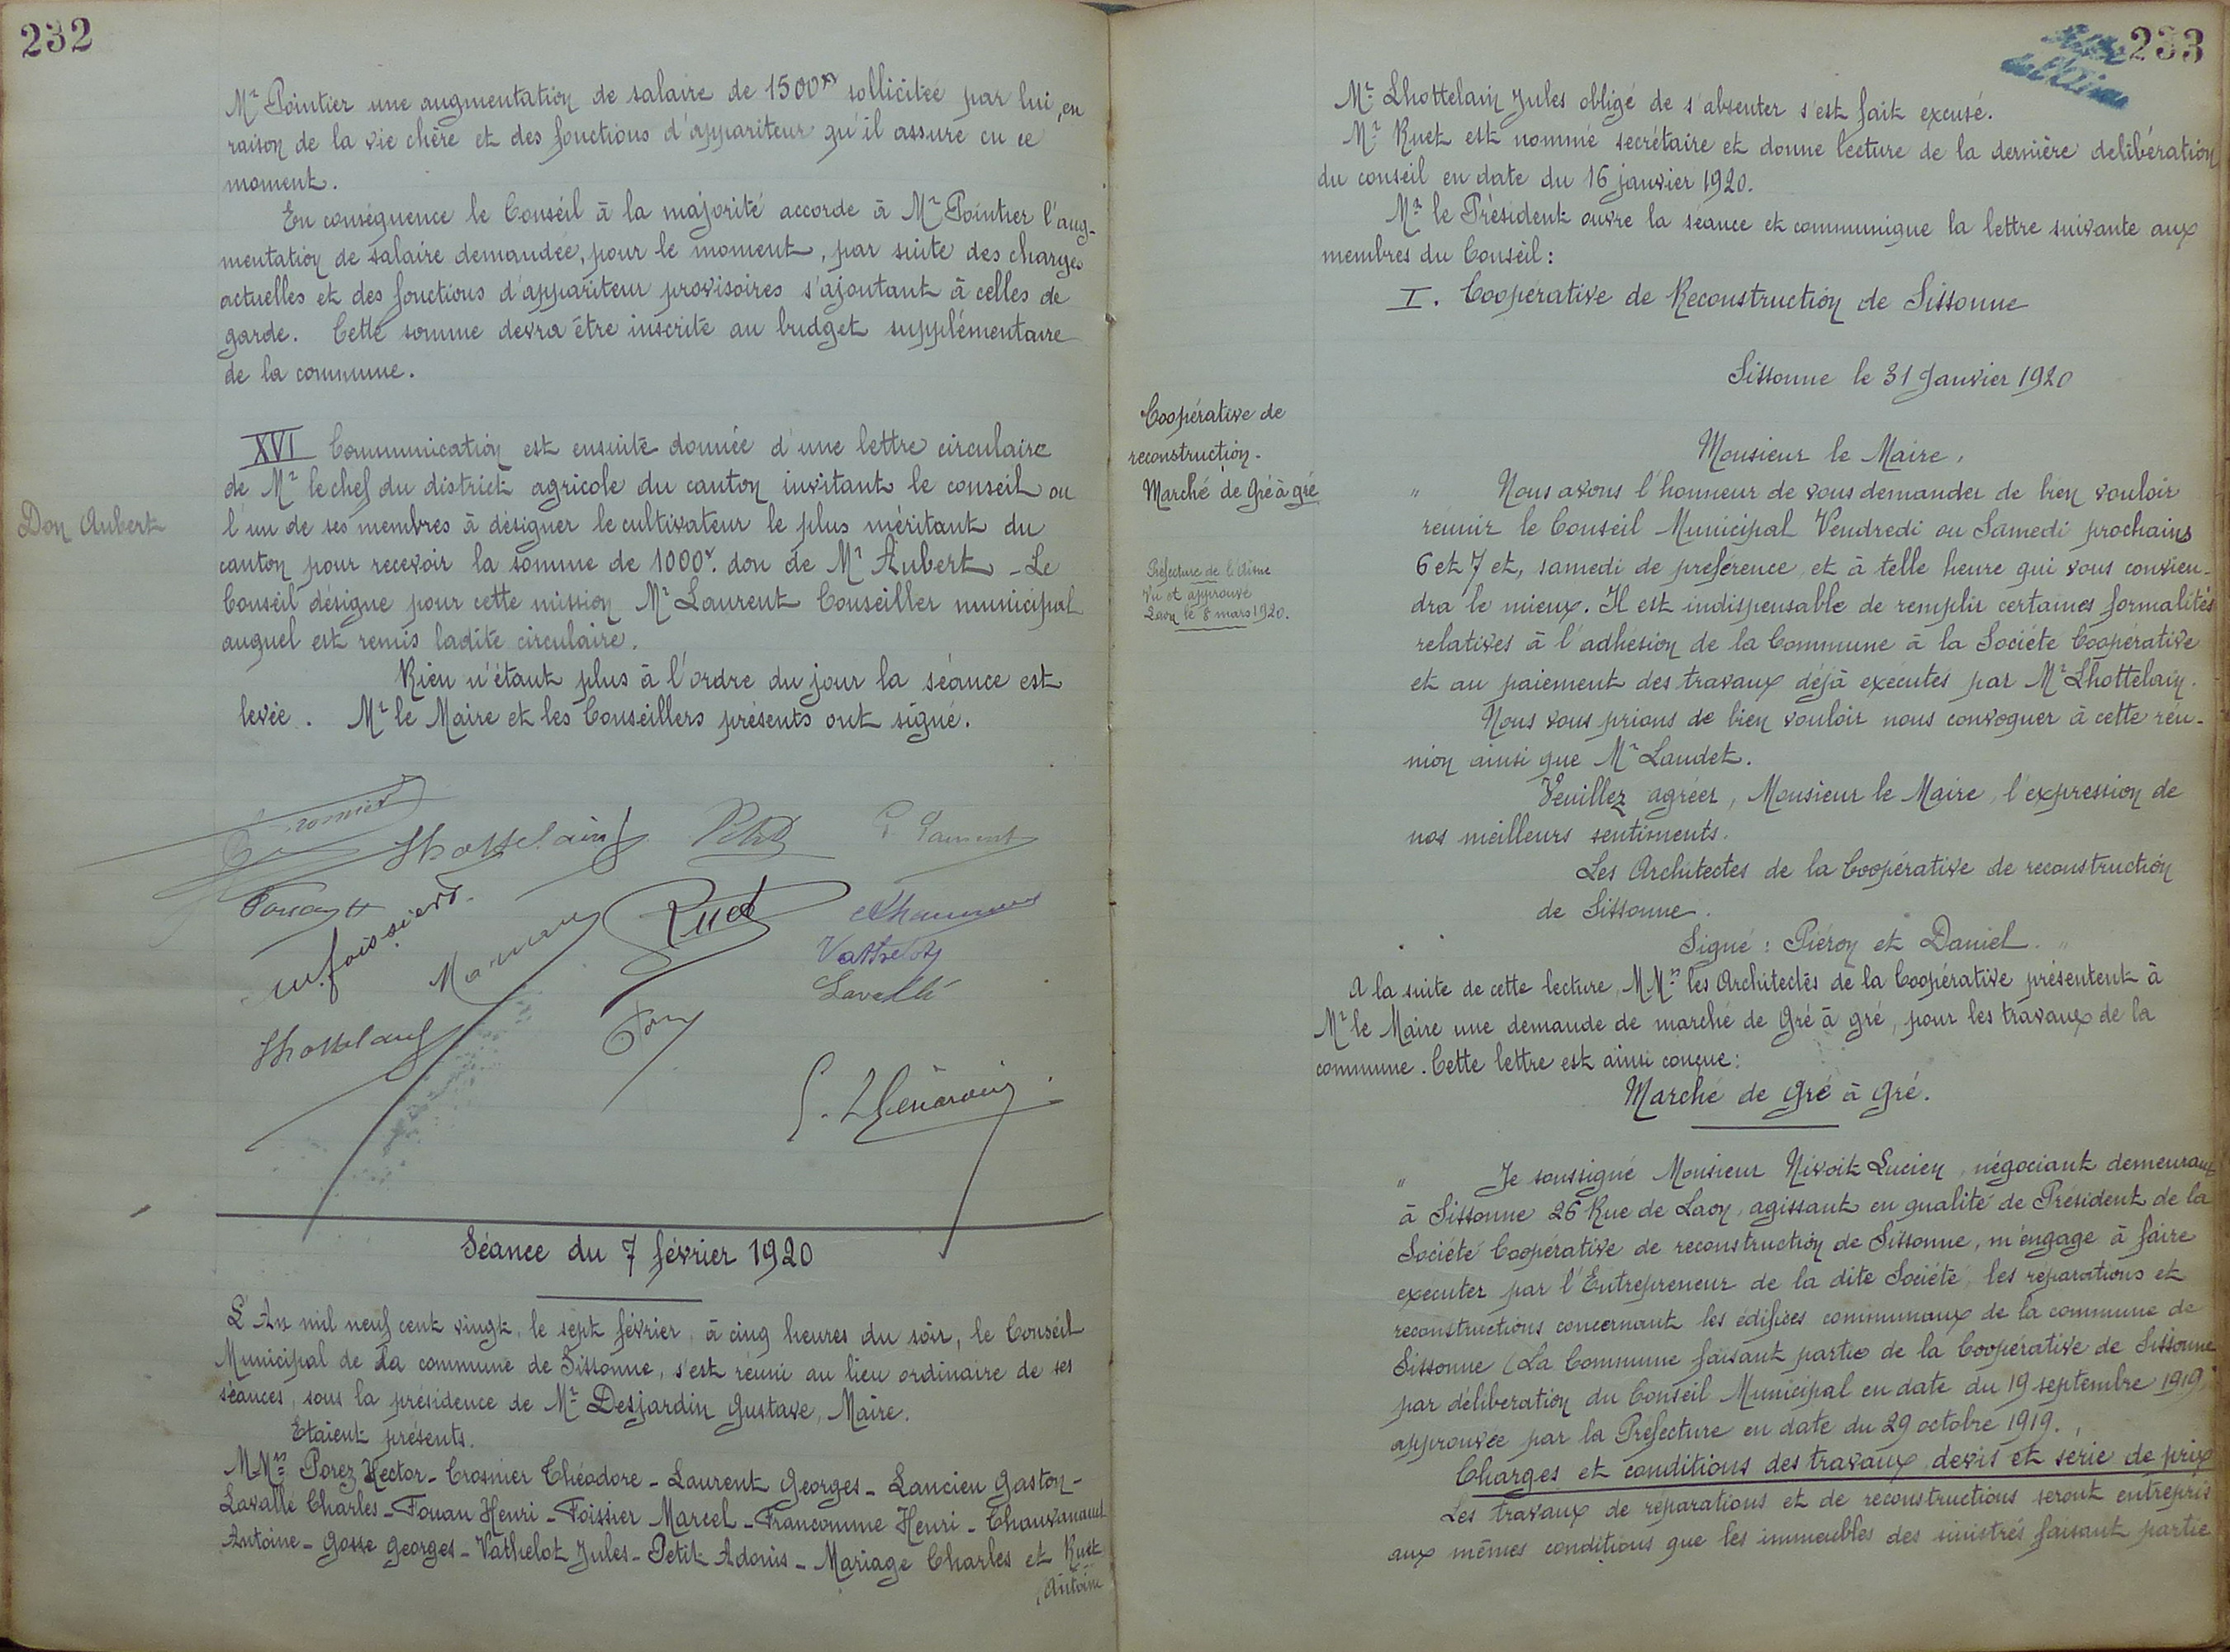 232
Mr Pointier une augmentation de salaire de 1500 frs sollicitée par lui, en
raison de la vie chère et des fonctions d'appariteur qu'il assure en ce
moment.
En conséquence le Conseil à la majorité accorde à Mr Pointier l'aug-
mentation de salaire demandée, pour le moment, par suite des charges
actuelles et des fonctions d'appariteur provisoires s'ajoutant à celles de
garde. Cette somme devra être inscrite au budget supplémentaire
de la commune.
XVI Communication est ensuite donnée d'une lettre circulaire
de Mr le chef du district agricole du canton invitant le conseil ou
Don Aubert
l'un de ses membres à désigner le cultivateur le plus méritant du
canton pour recevoir la somme de 1000 f. don de Mr Aubert - Le
Conseil désigne pour cette mission Mr Laurent Conseiller municipal
auquel est remis ladite circulaire.
Rien n'étant plus à l'ordre du jour la séance est
levée. Mr le Maire et les Conseillers présents ont signé.
Lhottelain
Petit
G. Laurent
Ruet
Vathelot
Lavallé
Séance du 7 février 1920
L'An mil neuf cent vingt, le sept février, à cinq heures du soir, le Conseil
Municipal de la commune de Sissonne, s'est réuni au lieu ordinaire de ses
séances, sous la présidence de Mr Desjardin Gustave, Maire.
Etaient présents.
MMrs Porez Hector - Crosnier Théodore - Laurent Georges - Lancien Gaston -
Lavallé Charles - Fouan Henri - Foissier Marcel - Francomme Henri - Chauvanaud
Antoine - Gosse Georges - Vathelot Jules - Petit Adonis - Mariage Charles et Ruet
Antoine
233
Mr Lhottelain Jules obligé de s'absenter s'est fait excusé.
Mr Ruet est nommé secrétaire et donne lecture de la dernière délibération
du conseil en date du 16 janvier 1920.
Mr le Président ouvre la séance et communique la lettre suivante aux
membres du Conseil :
I. Coopérative de Reconstruction de Sissonne
Sissonne le 31 Janvier 1920
Coopérative de
reconstruction -
Marché de Gré à gré
Préfecture de l'Aisne
Vu et approuvé
Laon le 8 mars 1920.
Monsieur le Maire,
" Nous avons l'honneur de vous demander de bien vouloir
réunir le Conseil Municipal Vendredi ou Samedi prochains
6 et 7 et, samedi de préférence et à telle heure qui vous convien-
dra le mieux. Il est indispensable de remplir certaines formalités
relatives à l'adhésion de la Commune à la Société Coopérative
et au paiement des travaux déjà exécutés par Mr Lhottelain.
Nous vous prions de bien vouloir nous convoquer à cette réu-
nion ainsi que Mr Laudet.
Veuillez agréer, Monsieur le Maire, l'expression de
nos meilleurs sentiments.
Les Architectes de la Coopérative de reconstruction
de Sissonne.
Signé : Piéron et Daniel. "
A la suite de cette lecture, MMrs les Architectes de la Coopérative présentent à
Mr le Maire une demande de marché de Gré à gré, pour les travaux de la
commune. Cette lettre est ainsi conçue :
Marché de Gré à Gré.
" Je soussigné Monsieur Nivoit Lucien, négociant demeurant
à Sissonne 26 Rue de Laon, agissant en qualité de Président de la
Société Coopérative de reconstruction de Sissonne, m'engage à faire
exécuter par l'Entrepreneur de la dite Société, les réparations et
reconstructions concernant les édifices communaux de la commune de
Sissonne (La Commune faisant partie de la Coopérative de Sissonne
par délibération du Conseil Municipal en date du 19 septembre 1919
approuvée par la Préfecture en date du 29 octobre 1919.
Charges et conditions des travaux, devis et serie de prix
Les travaux de réparations et de reconstructions seront entrepris
aux mêmes conditions que les immeubles des sinistrés faisant partie